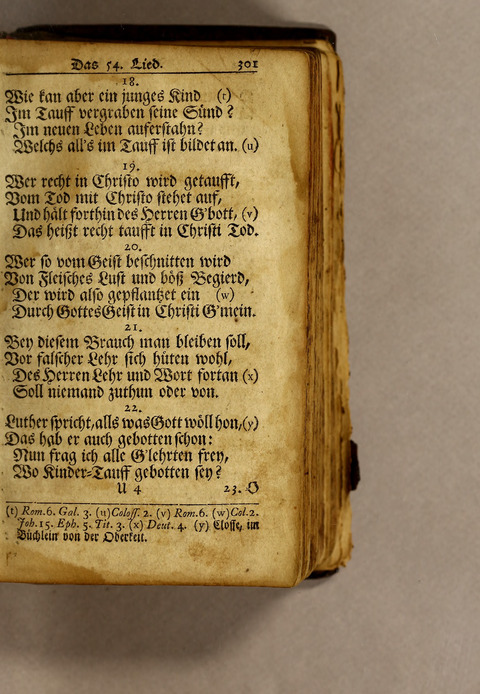 Das 54. Lied. 301
18.
Wie kan aber ein junges Kind (t)
Im Tauff vergraben seine Sünd?
Im neuen Leben auferstahn?
Welchs all's im Tauff ist bildet an. (u)
19.
Wer recht in Christo wird getaufft,
Vom Tod mit Christo stehet auf,
Und hält forthin des Herren G'bott, (v)
Das heißt recht taufft in Christi Tod.
20.
Wer so vom Geist beschnitten wird
Von Fleisches Lust und böß Begierd,
Der wird also gepflantzet ein (w)
Durch Gottes Geist in Christi G'mein.
21.
Bey diesem Brauch man bleiben soll,
Vor falscher Lehr sich hüten wohl,
Des Herren Lehr und Wort fortan (x)
Soll niemand zuthun oder von.
22.
Luther spricht, alls was Gott wöll hon, (y)
Das hab er auch gebotten schon:
Nun frag ich alle G'lehrten frey,
Wo Kinder-Tauff gebotten sey?
U 4 23. O
(t) Rom. 6. Gal. 3. (u) Coloss. 2. (v) Rom. 6. (w) Col. 2.
Joh. 15. Eph. 5. Tit. 3. (x) Deut. 4. (y) Closse, im
Büchlein von der Oberkeit.